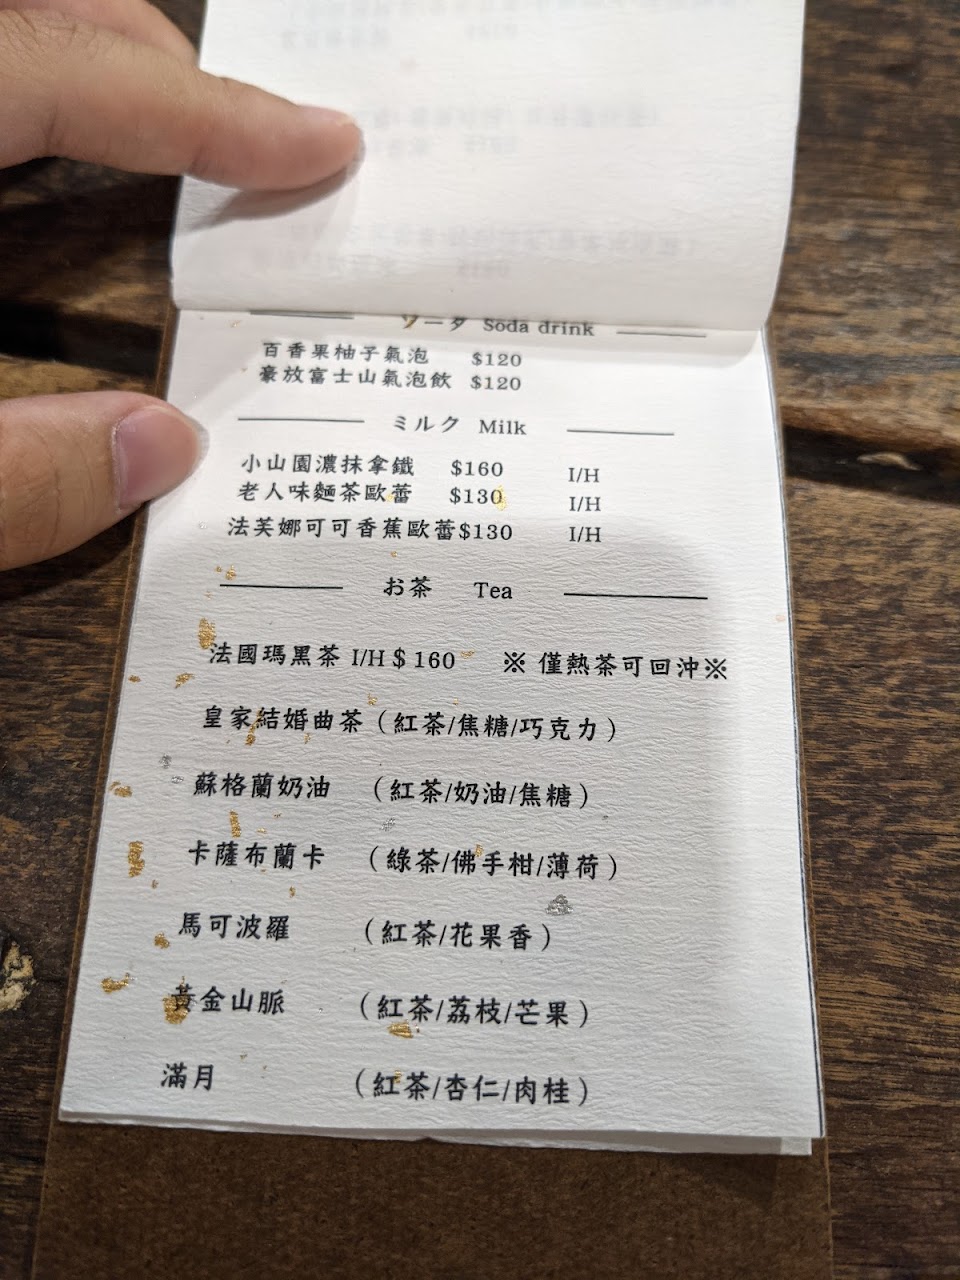 ソータ Soda drink
百香果柚子氣泡 $120
豪放富士山氣泡飲 $120
ミルク Milk
小山園濃抹拿鐵 $160 I/H
老人味麵茶歐蕾 $130 I/H
法芙娜可可香蕉歐蕾$130 I/H
お茶 Tea
法國瑪黑茶 I/H $ 160 ※ 僅熱茶可回沖※
皇家結婚曲茶（紅茶/焦糖/巧克力）
蘇格蘭奶油 （紅茶/奶油/焦糖）
卡薩布蘭卡 （綠茶/佛手柑/薄荷）
馬可波羅 （紅茶/花果香）
黃金山脈 （紅茶/荔枝/芒果）
滿月 （紅茶/杏仁/肉桂）